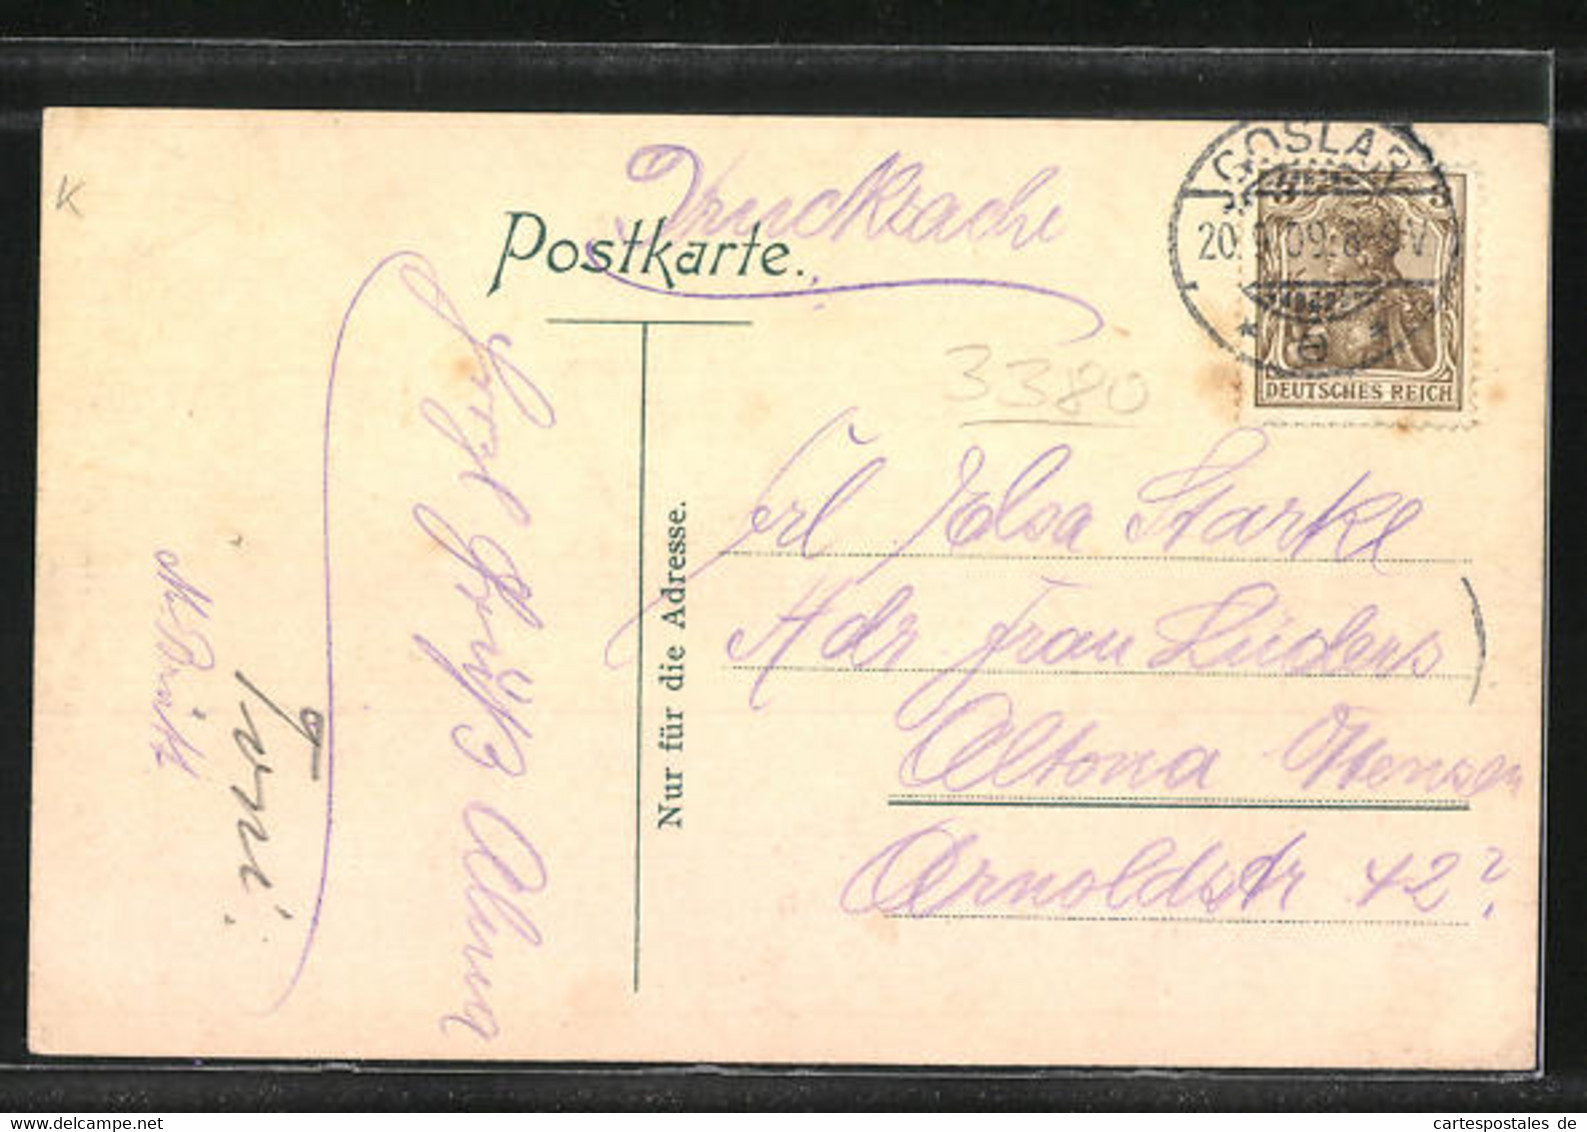 K
Drucksache
Postkarte.
GOSLAR
20. 09. 8-9 V
DEUTSCHES REICH
3380
Nur für die Adresse.
Frl Elsa Starke
Adr Frau Lüders
Altona Ottensen
Arnoldstr 42?
Gruß
Alma
cartespostales de